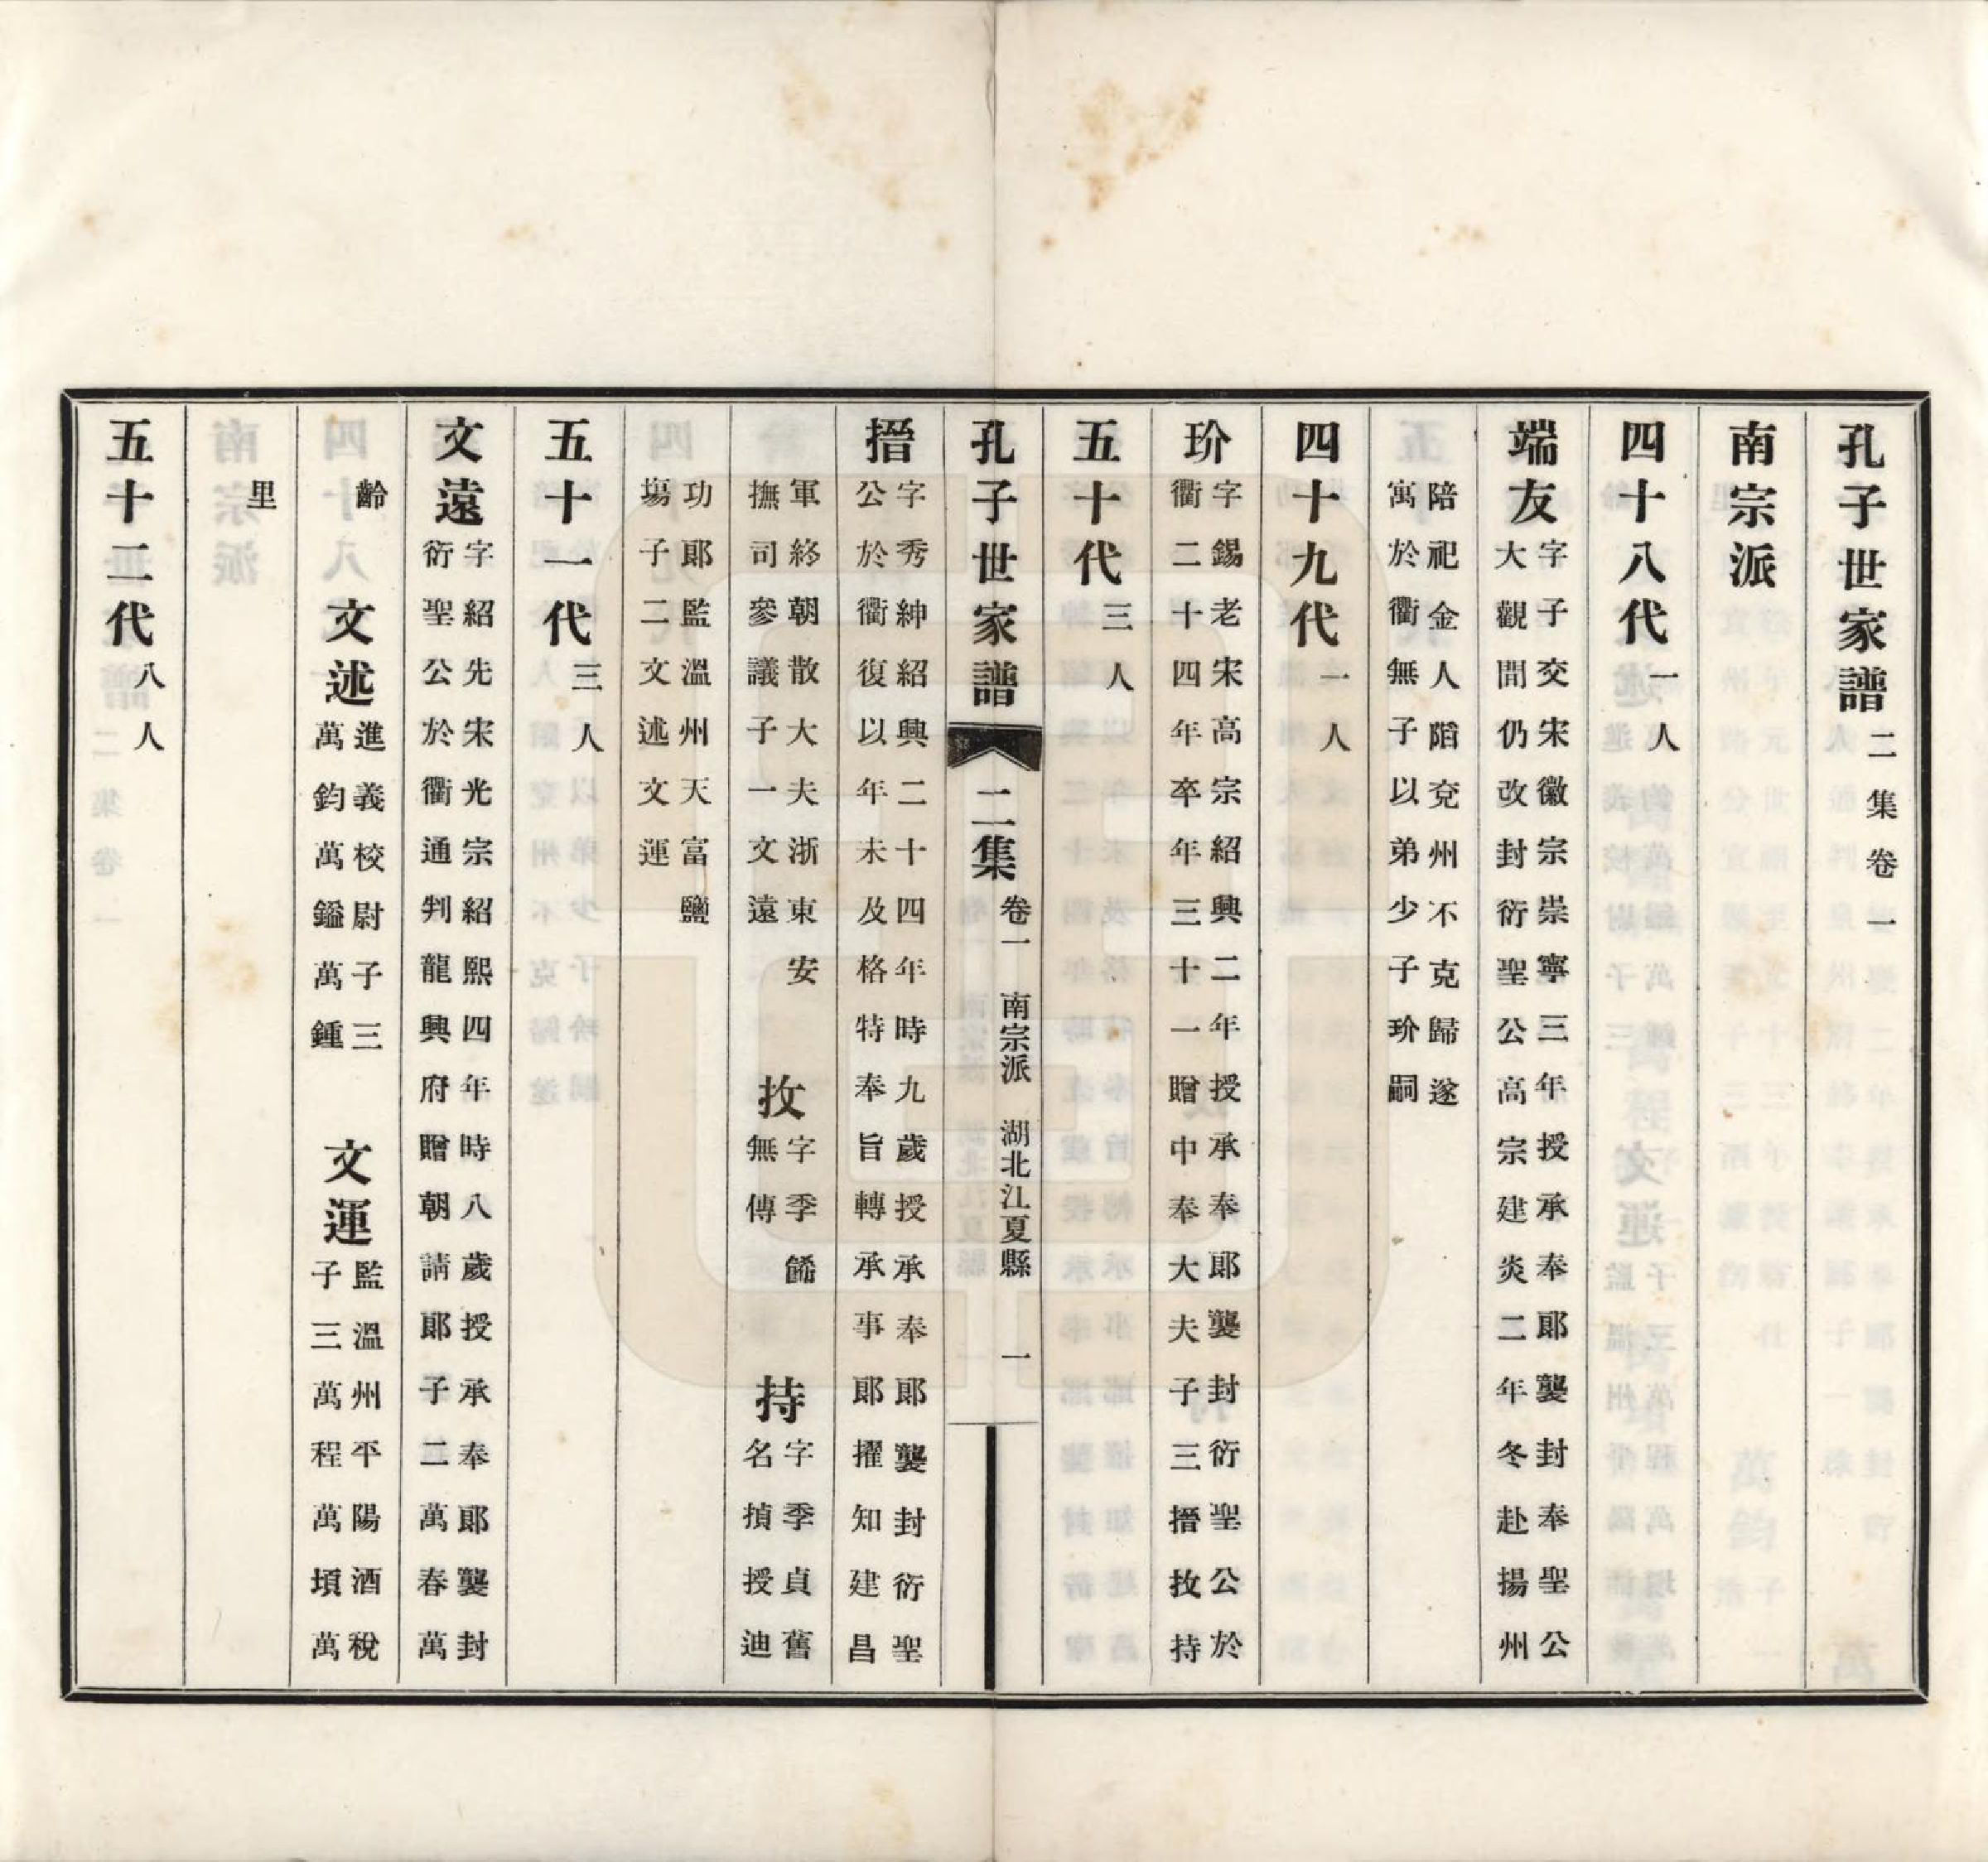 孔子世家譜二集卷一
南宗派
四十八代一人
端友字子交宋徽宗崇寧三年授承奉郎襲封奉聖公
大觀間仍改封衍聖公高宗建炎二年冬赴揚州
陪祀金人陷兗州不克歸遂
寓於衢無子以弟少子玠嗣
四十九代一人
玠字錫老宋高宗紹興二年授承奉郎襲封衍聖公於
衢二十四年卒年三十一贈中奉大夫子三搢抆持
五十代三人
孔子世家譜 二集 卷一 南宗派 湖北江夏縣 一
搢字秀紳紹興二十四年時九歲授承奉郎襲封衍聖
公於衢復以年未及格特奉旨轉承事郎擢知建昌
軍終朝散大夫浙東安
撫司參議子一文遠
抆字季餙
無傳
持字季貞舊
名揁授迪
功郎監溫州天富鹽
塲子二文述文運
五十一代三人
文遠字紹先宋光宗紹熙四年時八歲授承奉郎襲封
衍聖公於衢通判龍興府贈朝請郎子二萬春萬
齡
文述進義校尉子三
萬鈞萬鎰萬鍾
文運監溫州平陽酒稅
子三萬程萬頃萬
里
五十二代八人